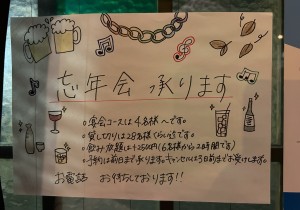 忘年会 承ります
○宴会コースは4名様〜です。
○貸し切りは28名様くらいまでです
○飲み放題は+2500円(6名様から2時間です)
○予約は前日まで承ります。キャンセルは3日前までお受けします。
お電話 お待ちしております!!